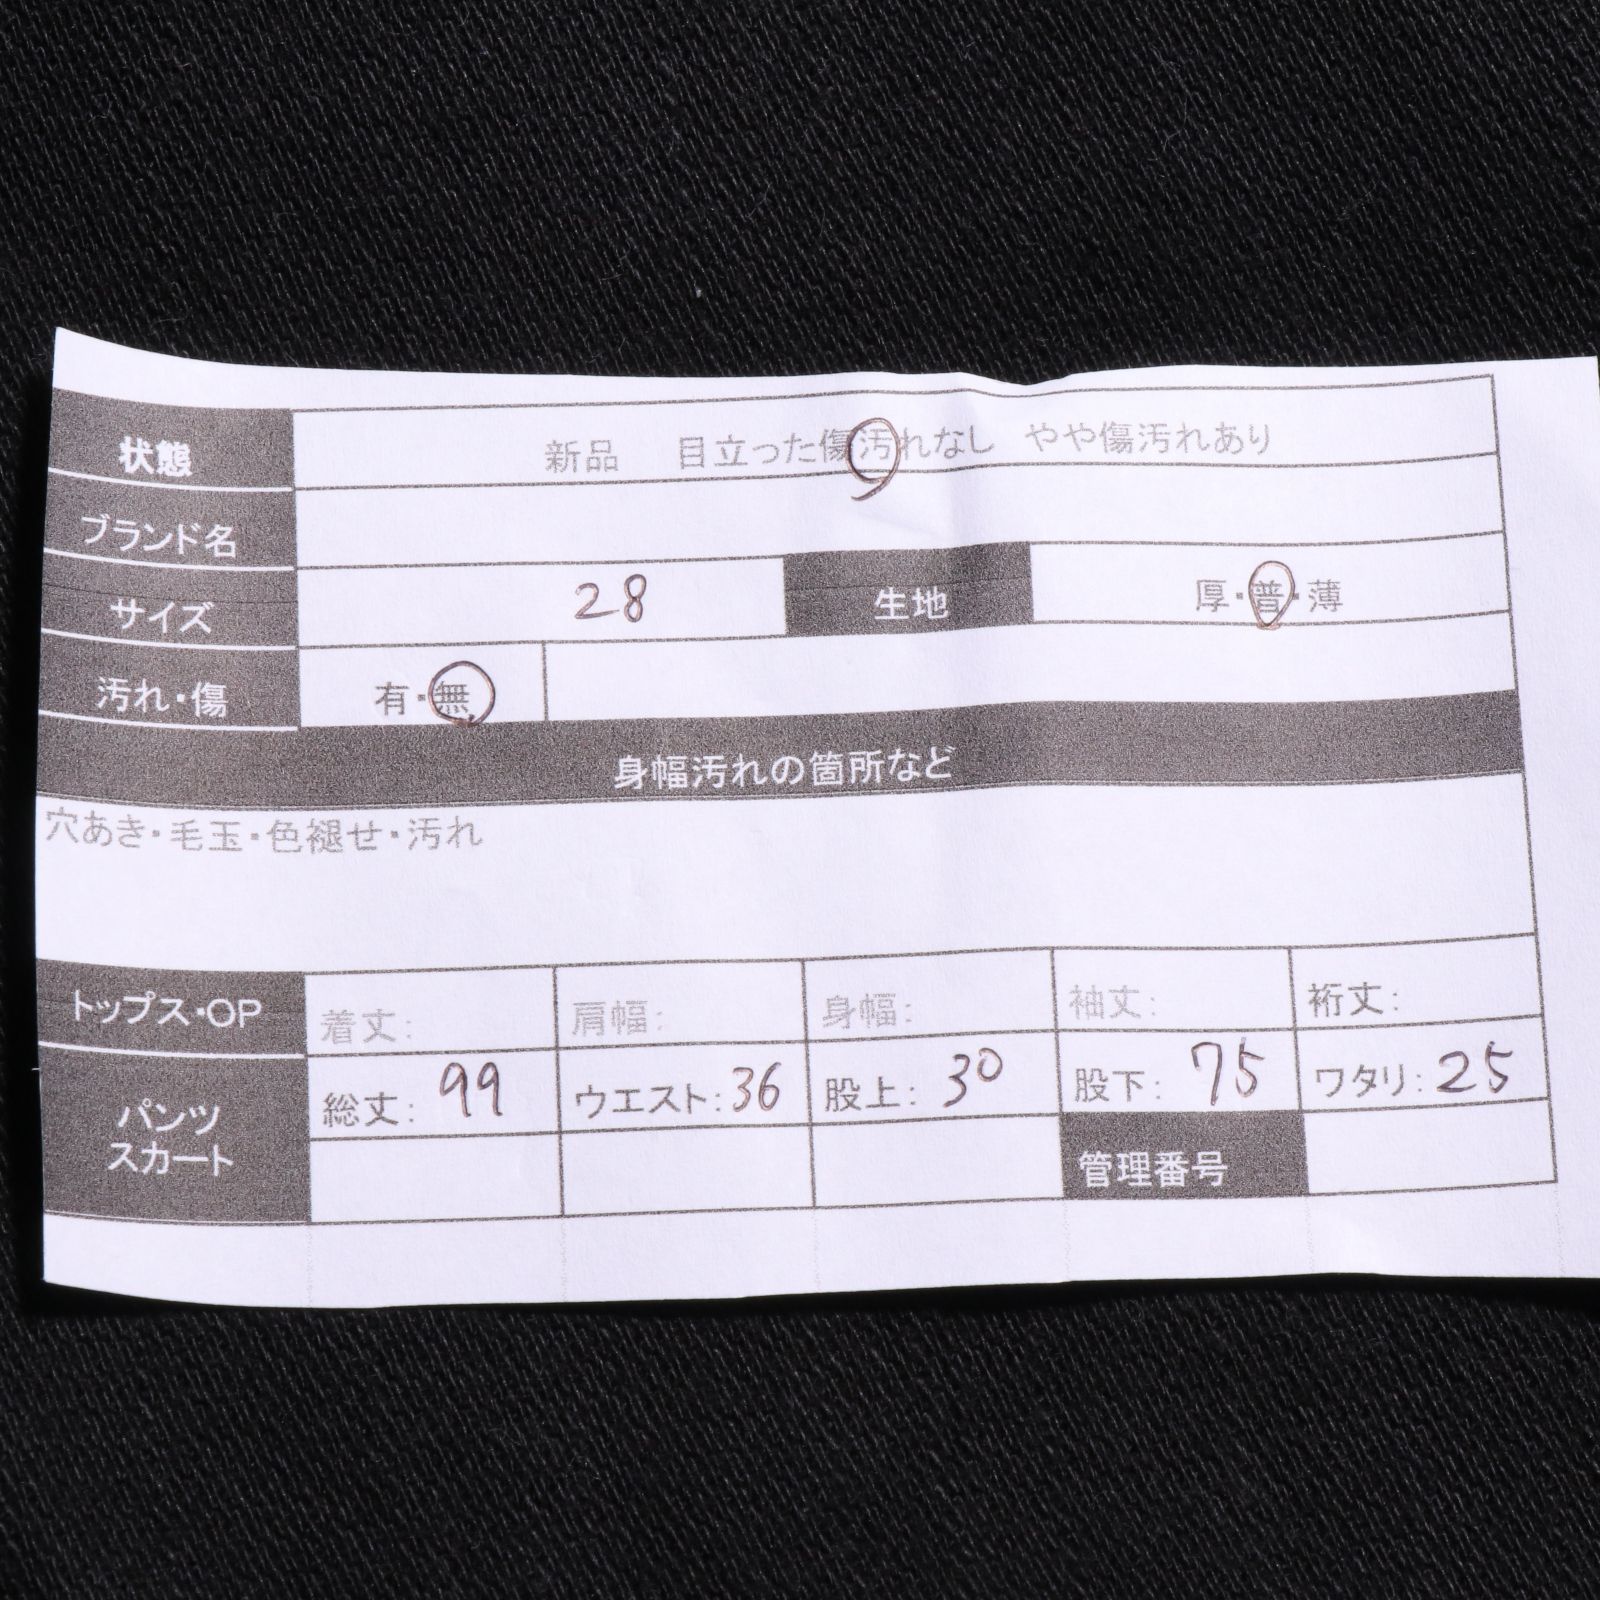 状態 新品 目立った傷汚れなし やや傷汚れあり
ブランド名
サイズ 28 生地 厚・普・薄
汚れ・傷 有・無
身幅汚れの箇所など
穴あき・毛玉・色褪せ・汚れ
トップス・OP 着丈: 肩幅: 身幅: 袖丈: 裄丈:
パンツ スカート 総丈: 99 ウエスト: 36 股上: 30 股下: 75 ワタリ: 25
管理番号